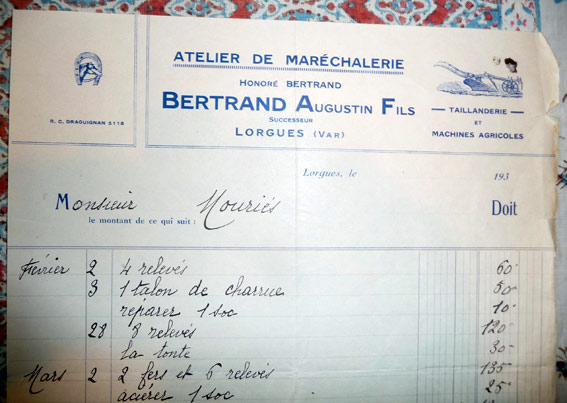 ATELIER DE MARÉCHALERIE
HONORÉ BERTRAND
BERTRAND AUGUSTIN FILS
SUCCESSEUR
LORGUES (VAR)
R. C. DRAGUIGNAN 5118
TAILLANDERIE
ET
MACHINES AGRICOLES
Lorgues, le 193
Monsieur Mouriés Doit
le montant de ce qui suit :
Février 2 4 relevés 60
3 1 talon de charrue 50
réparer 1 soc 10
28 8 relevés 120
la tonte 30
Mars 2 2 fers et 6 relevés 135
aciérer 1 soc 25